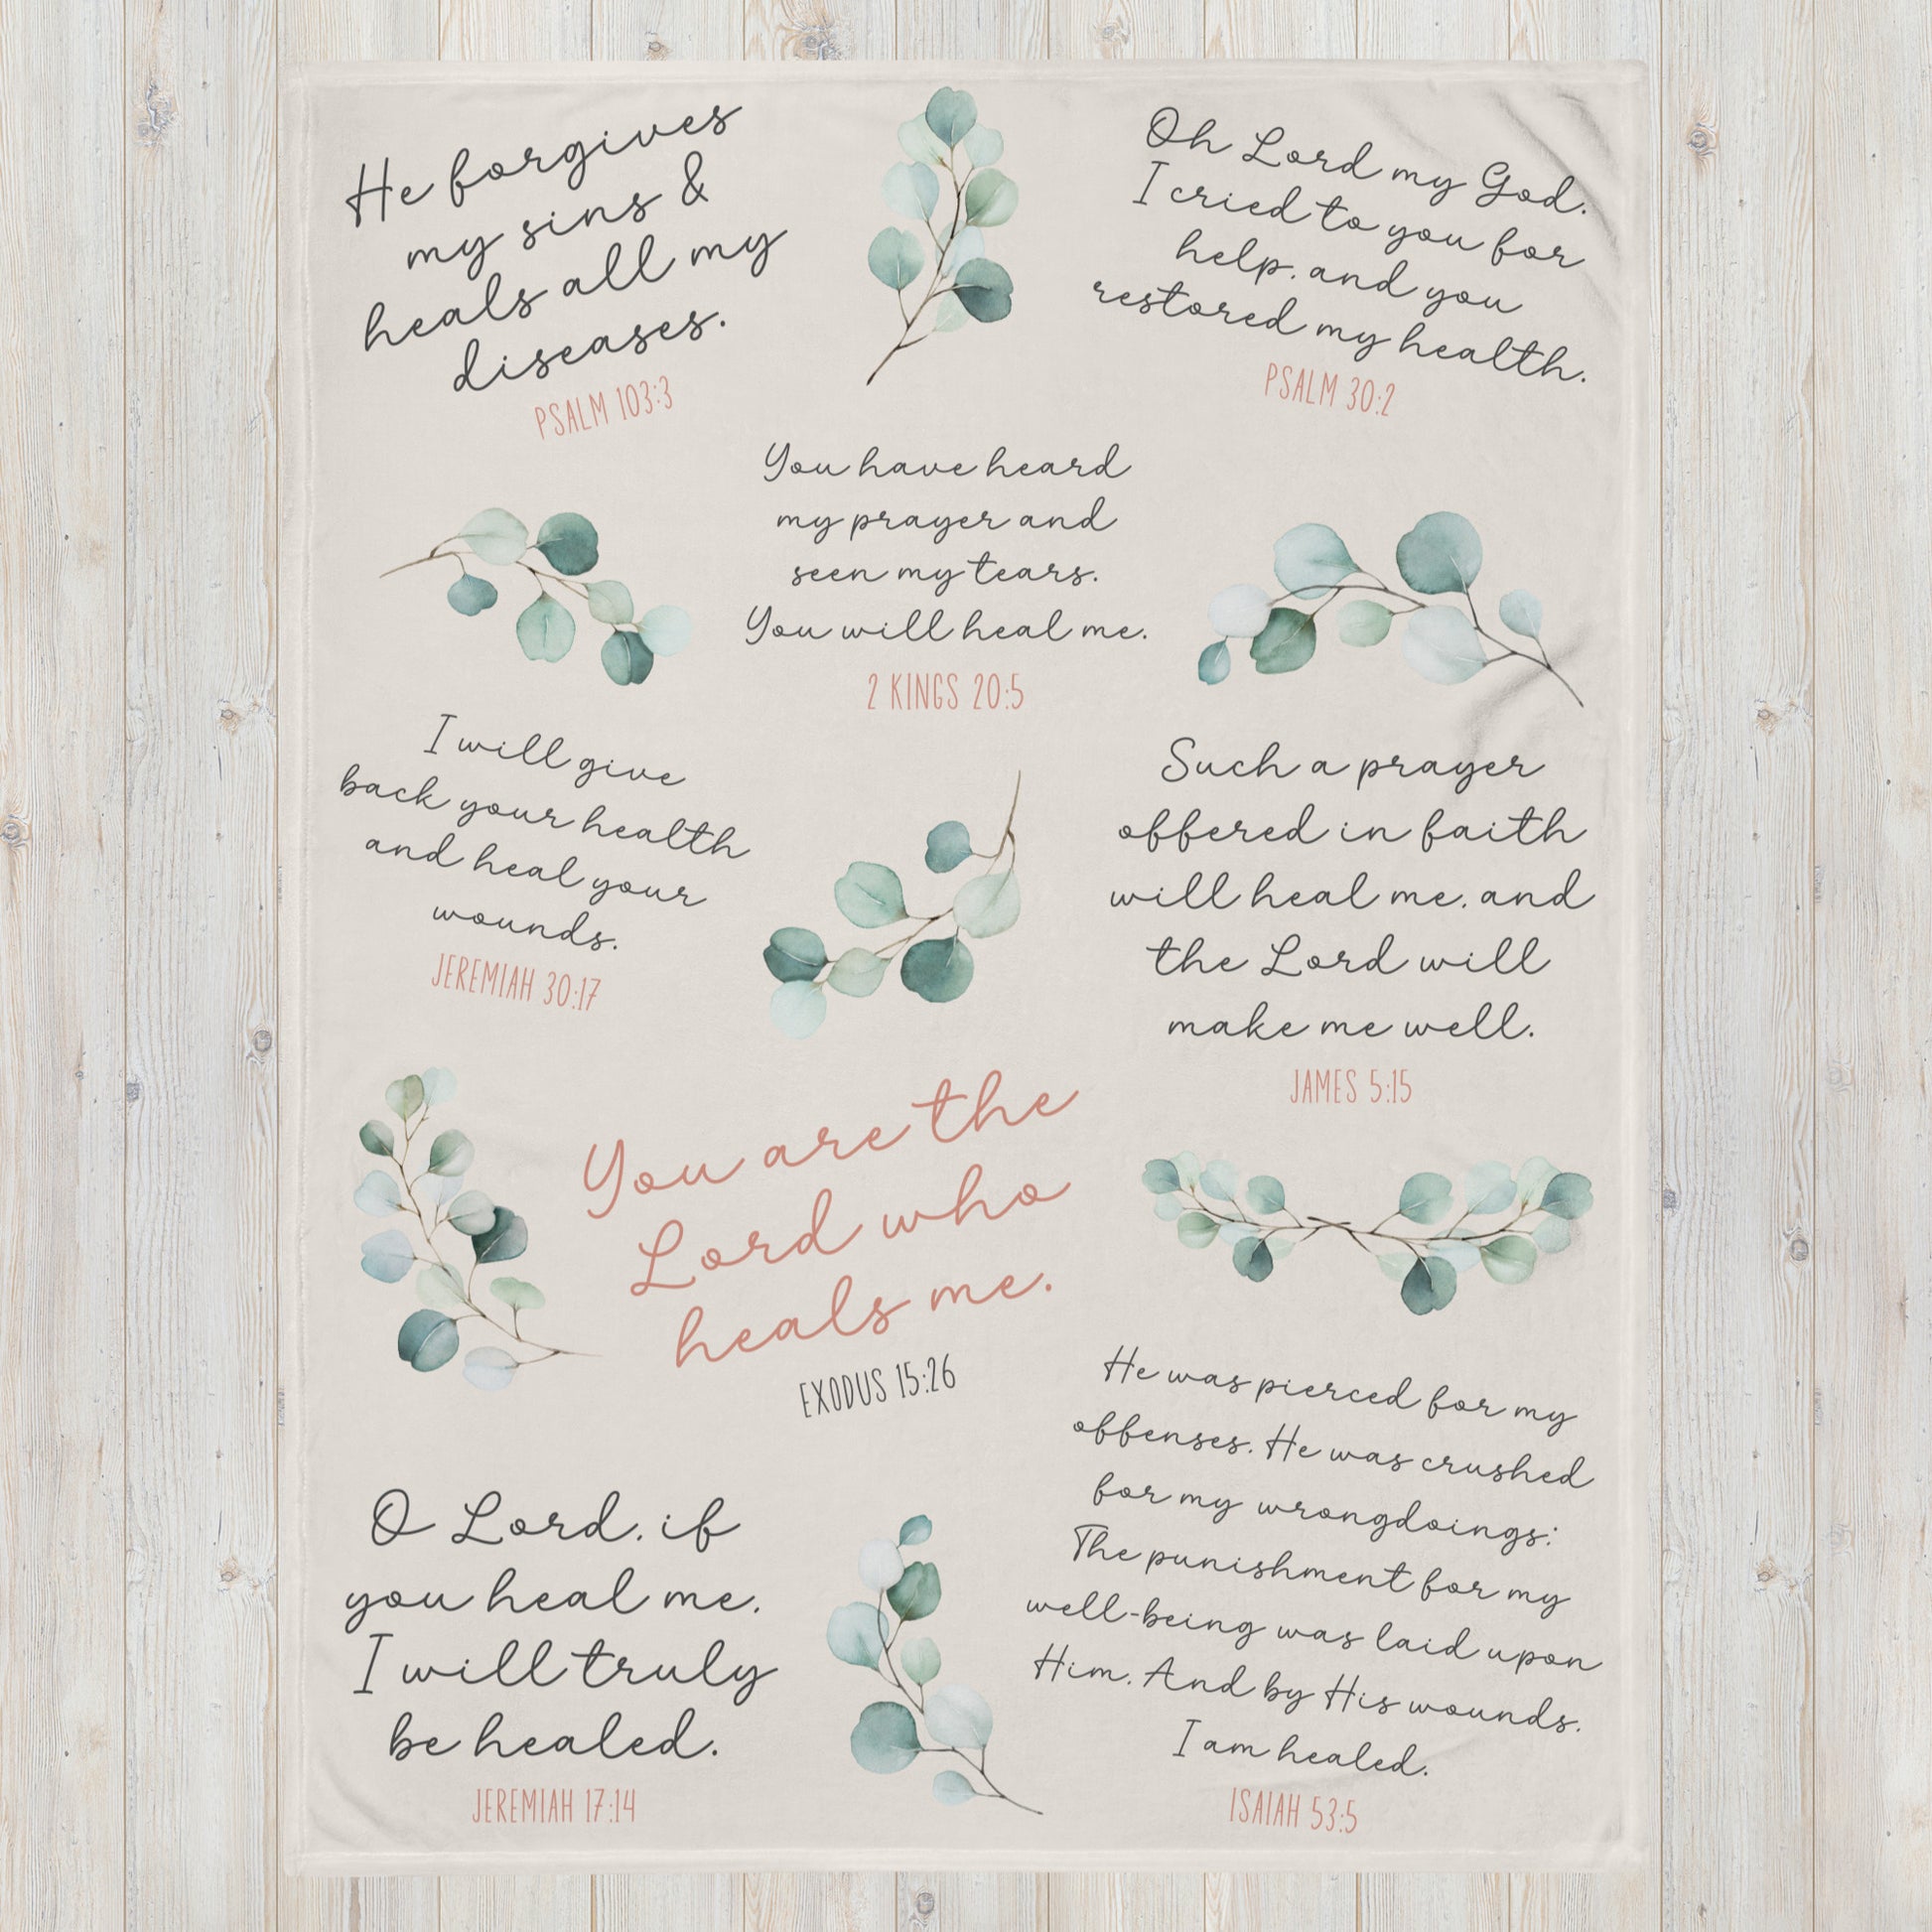 He forgives
my sins &
heals all my
diseases.
PSALM 103:3
Oh Lord my God,
I cried to you for
help, and you
restored my health.
PSALM 30:2
You have heard
my prayer and
seen my tears.
You will heal me.
2 KINGS 20:5
I will give
back your health
and heal your
wounds.
JEREMIAH 30:17
Such a prayer
offered in faith
will heal me, and
the Lord will
make me well.
JAMES 5:15
You are the
Lord who
heals me.
EXODUS 15:26
He was pierced for my
offenses. He was crushed
for my wrongdoings;
The punishment for my
well-being was laid upon
Him. And by His wounds,
I am healed.
ISAIAH 53:5
O Lord, if
you heal me,
I will truly
be healed.
JEREMIAH 17:14